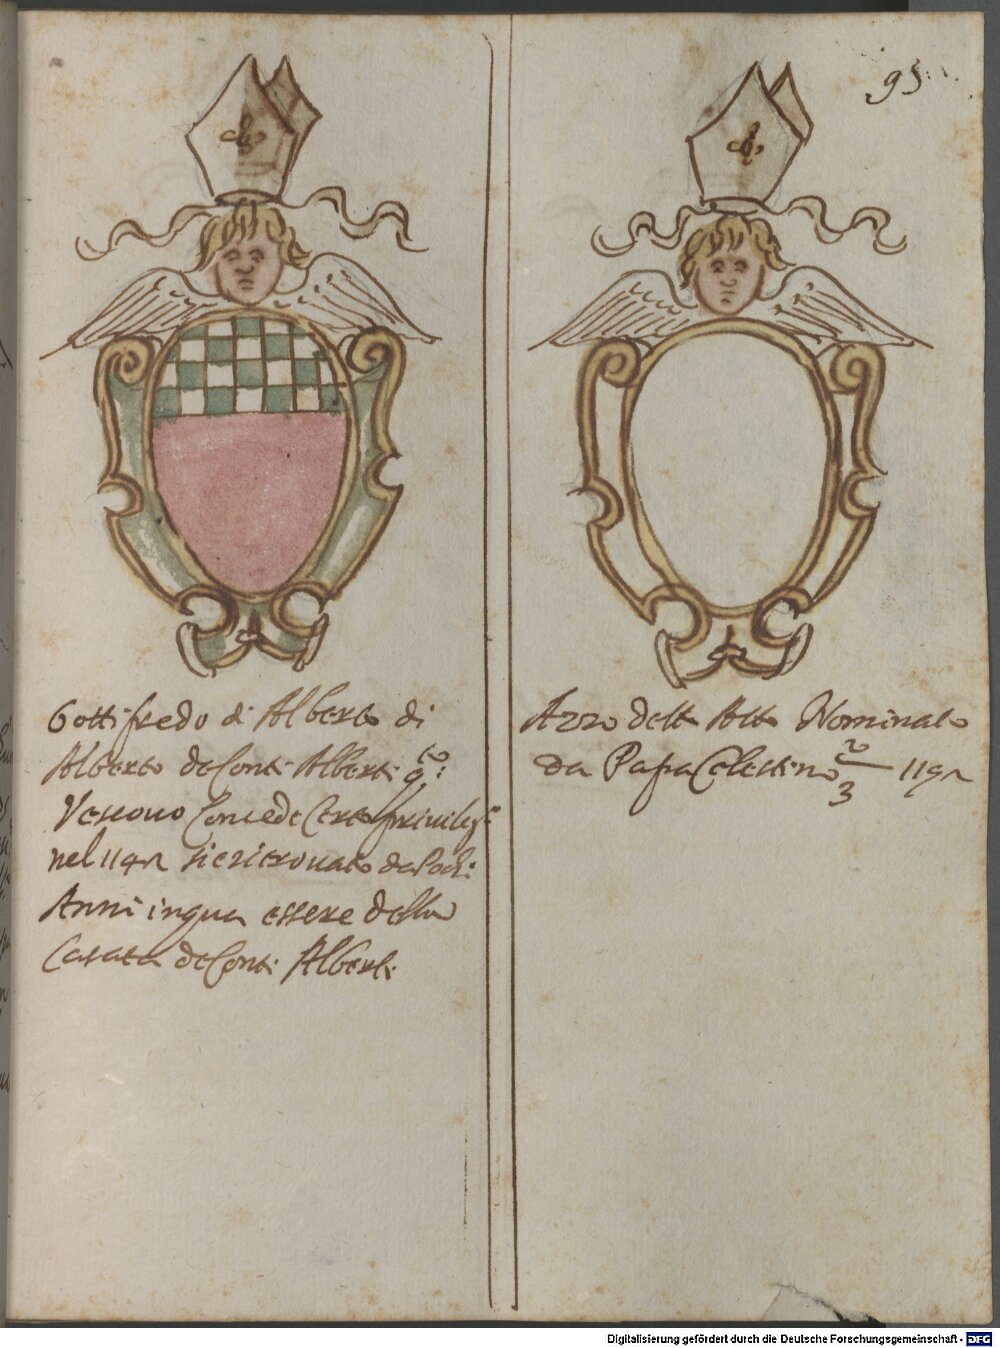 95
Gottifredo di Alberto di
Alberto de Conti Alberti q.to:
Vescouo Concede Certi priuileg.i
nel 114 si e ritrouato da Poch:
Anni in qua essere della
Casata de Conti Alberti
Azzo dell Nominato
da Papa Celestino 3 119
Digitalisierung gefördert durch die Deutsche Forschungsgemeinschaft - DFG